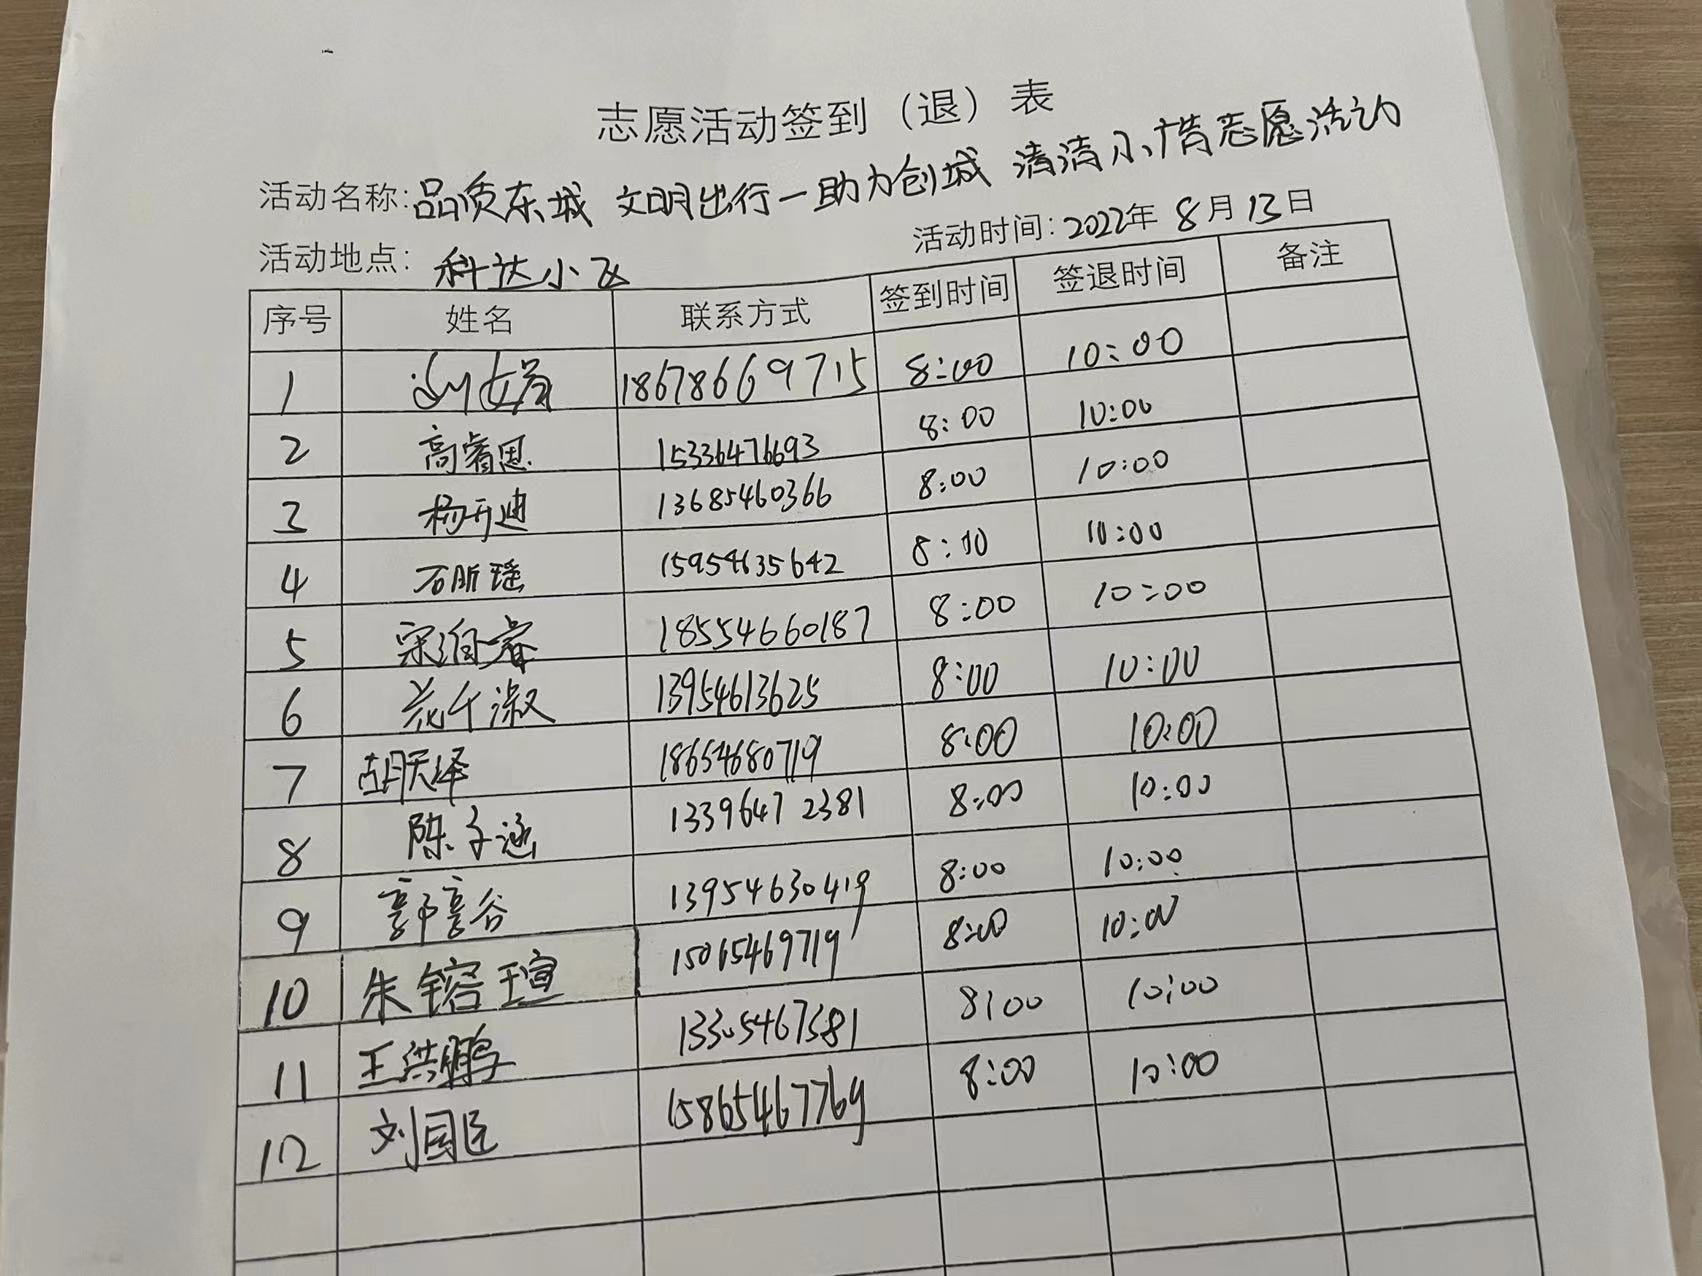 志愿活动签到（退）表
活动名称:品质东城 文明出行一助力创城 清洁小广告志愿活动
活动地点: 科达小区 活动时间:2022年 8月13日
序号 姓名 联系方式 签到时间 签退时间 备注
1 刘娟 18678669715 8:00 10:00
2 高睿恩 15336476693 8:00 10:00
3 杨开迪 13685460366 8:00 10:00
4 石昕瑶 15954635642 8:00 10:00
5 宋泊睿 18554660187 8:00 10:00
6 13954613625 8:00 10:00
7 胡天泽 18654680719 8:00 10:00
8 陈子涵 13396472381 8:00 10:00
9 郭享谷 13954630419 8:00 10:00
10 朱镕瑄 15065469719 8:00 10:00
11 王洪鹏 13305467381 8:00 10:00
12 刘国臣 15865467769 8:00 10:00